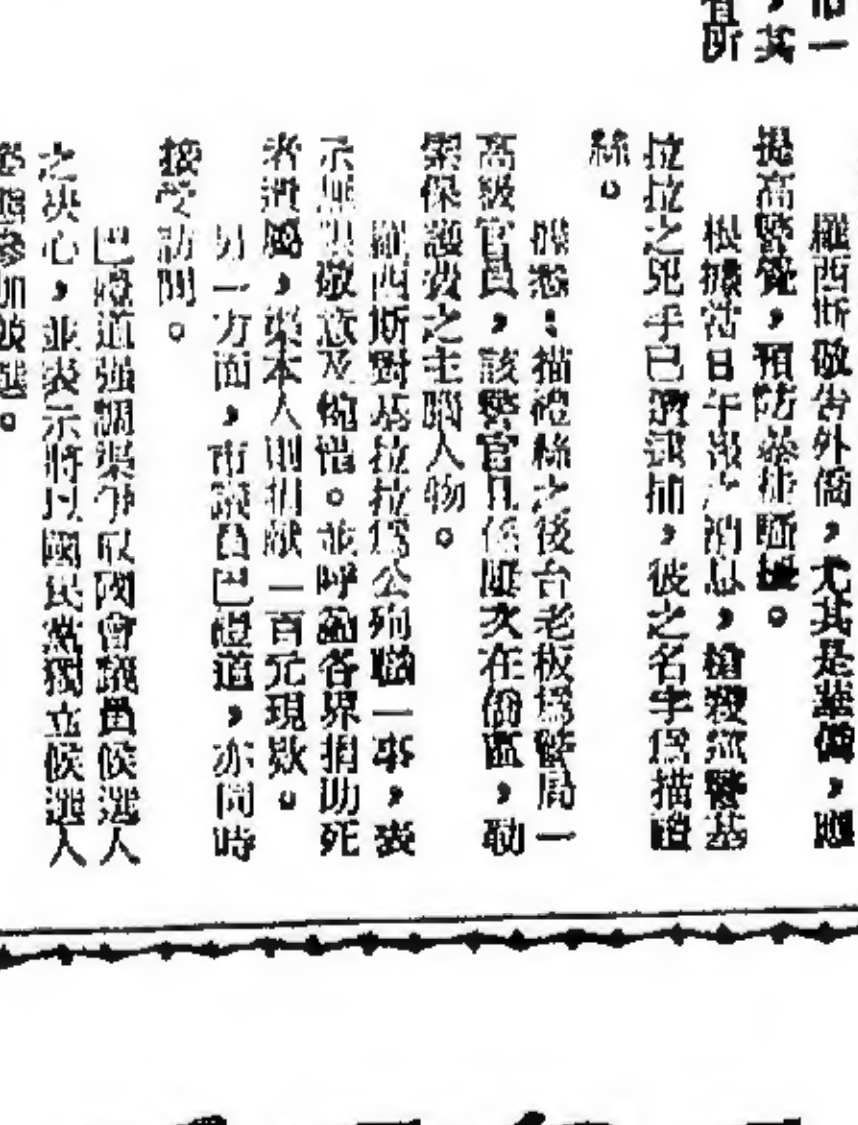 市一
，其
所
羅西斯敬告外僑，尤其是華僑，應
提高警覺，預防暴徒騷擾。
根據當日午報之消息，槍殺巡警基
拉拉之兇手已遭逮捕，彼之名字爲描禮
絲。
據悉：描禮絲之後台老板爲警局一
高級官員，該警官且係屢次在僑區，勒
索保護費之主腦人物。
羅西斯對基拉拉爲公殉職一事，表
示無限敬意及惋惜。並呼籲各界捐助死
者遺屬，渠本人則捐献一百元現欵。
另一方面，市議員巴證道，亦同時
接受訪問。
巴證道强調渠爭取國會議員候選人
之决心，並表示將以國民黨獨立候選人
參加競選。